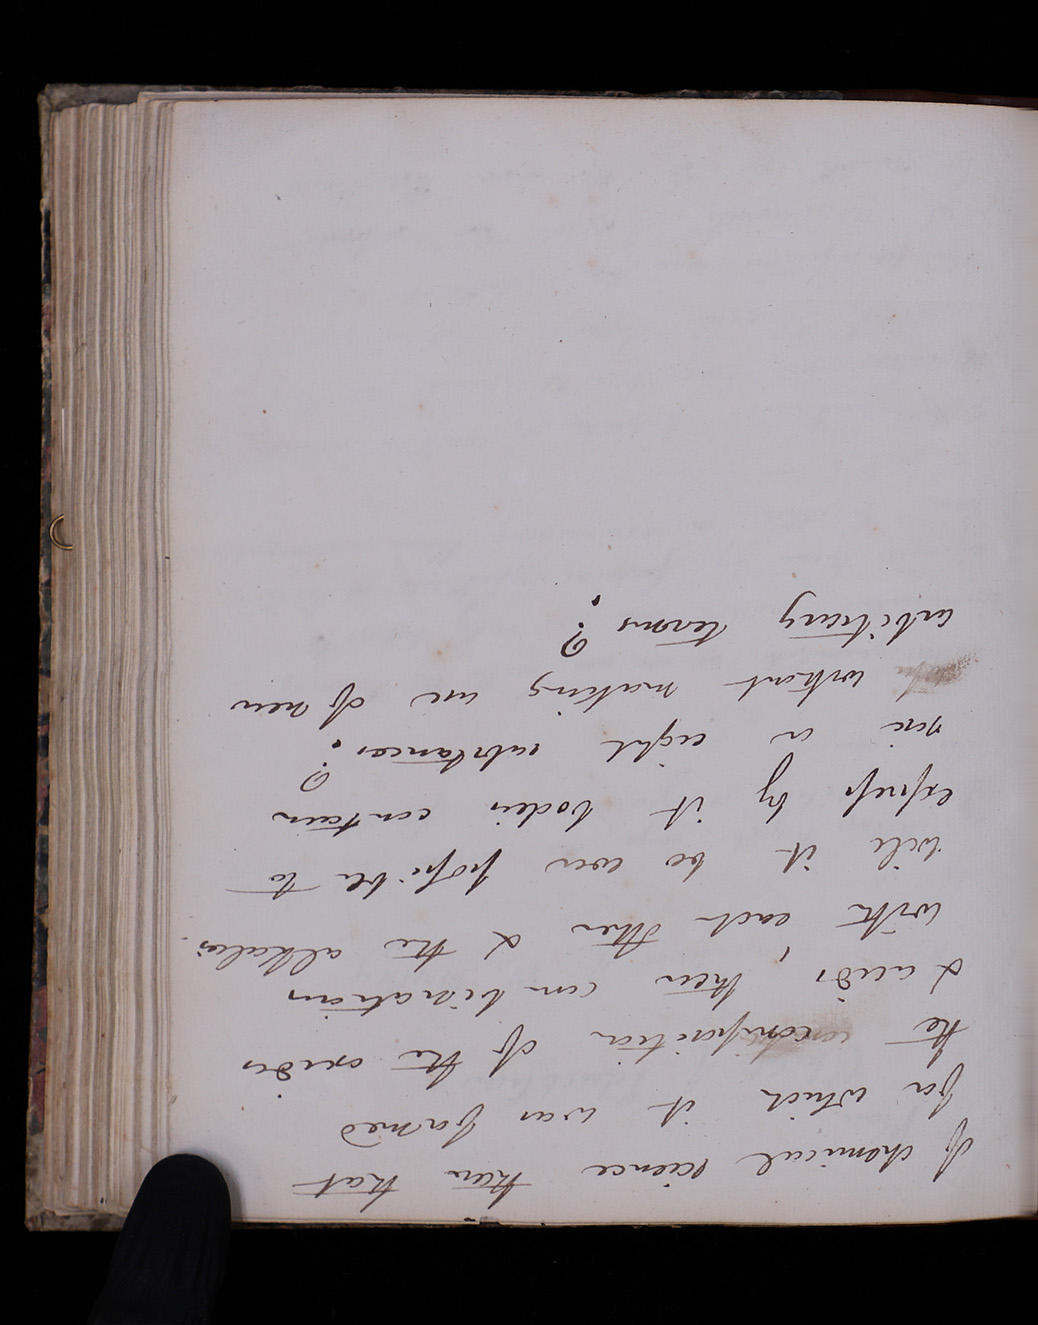 of chemical science then that
for which it was formed
the composition of the oxides
& acids, their combinations
with each other & the alkalies.
will it be ever possible to
express by it bodies contain
six or eight substances?
without making use of new
arbitrary terms?